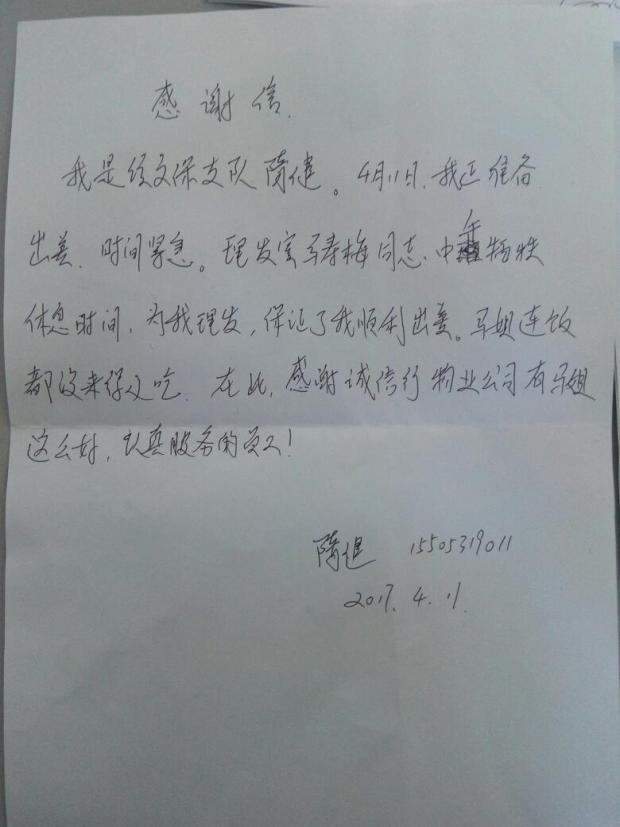 感谢信.
我是经文保支队隋健。4月11日,我正准备
出差,时间紧急。理发室马春梅同志,中午牺牲
休息时间,为我理发,保证了我顺利出差。马姐连饭
都没来得及吃.在此,感谢诚信行物业公司有马姐
这么好,认真服务的员工!
隋健 15505319011
2017.4.11.